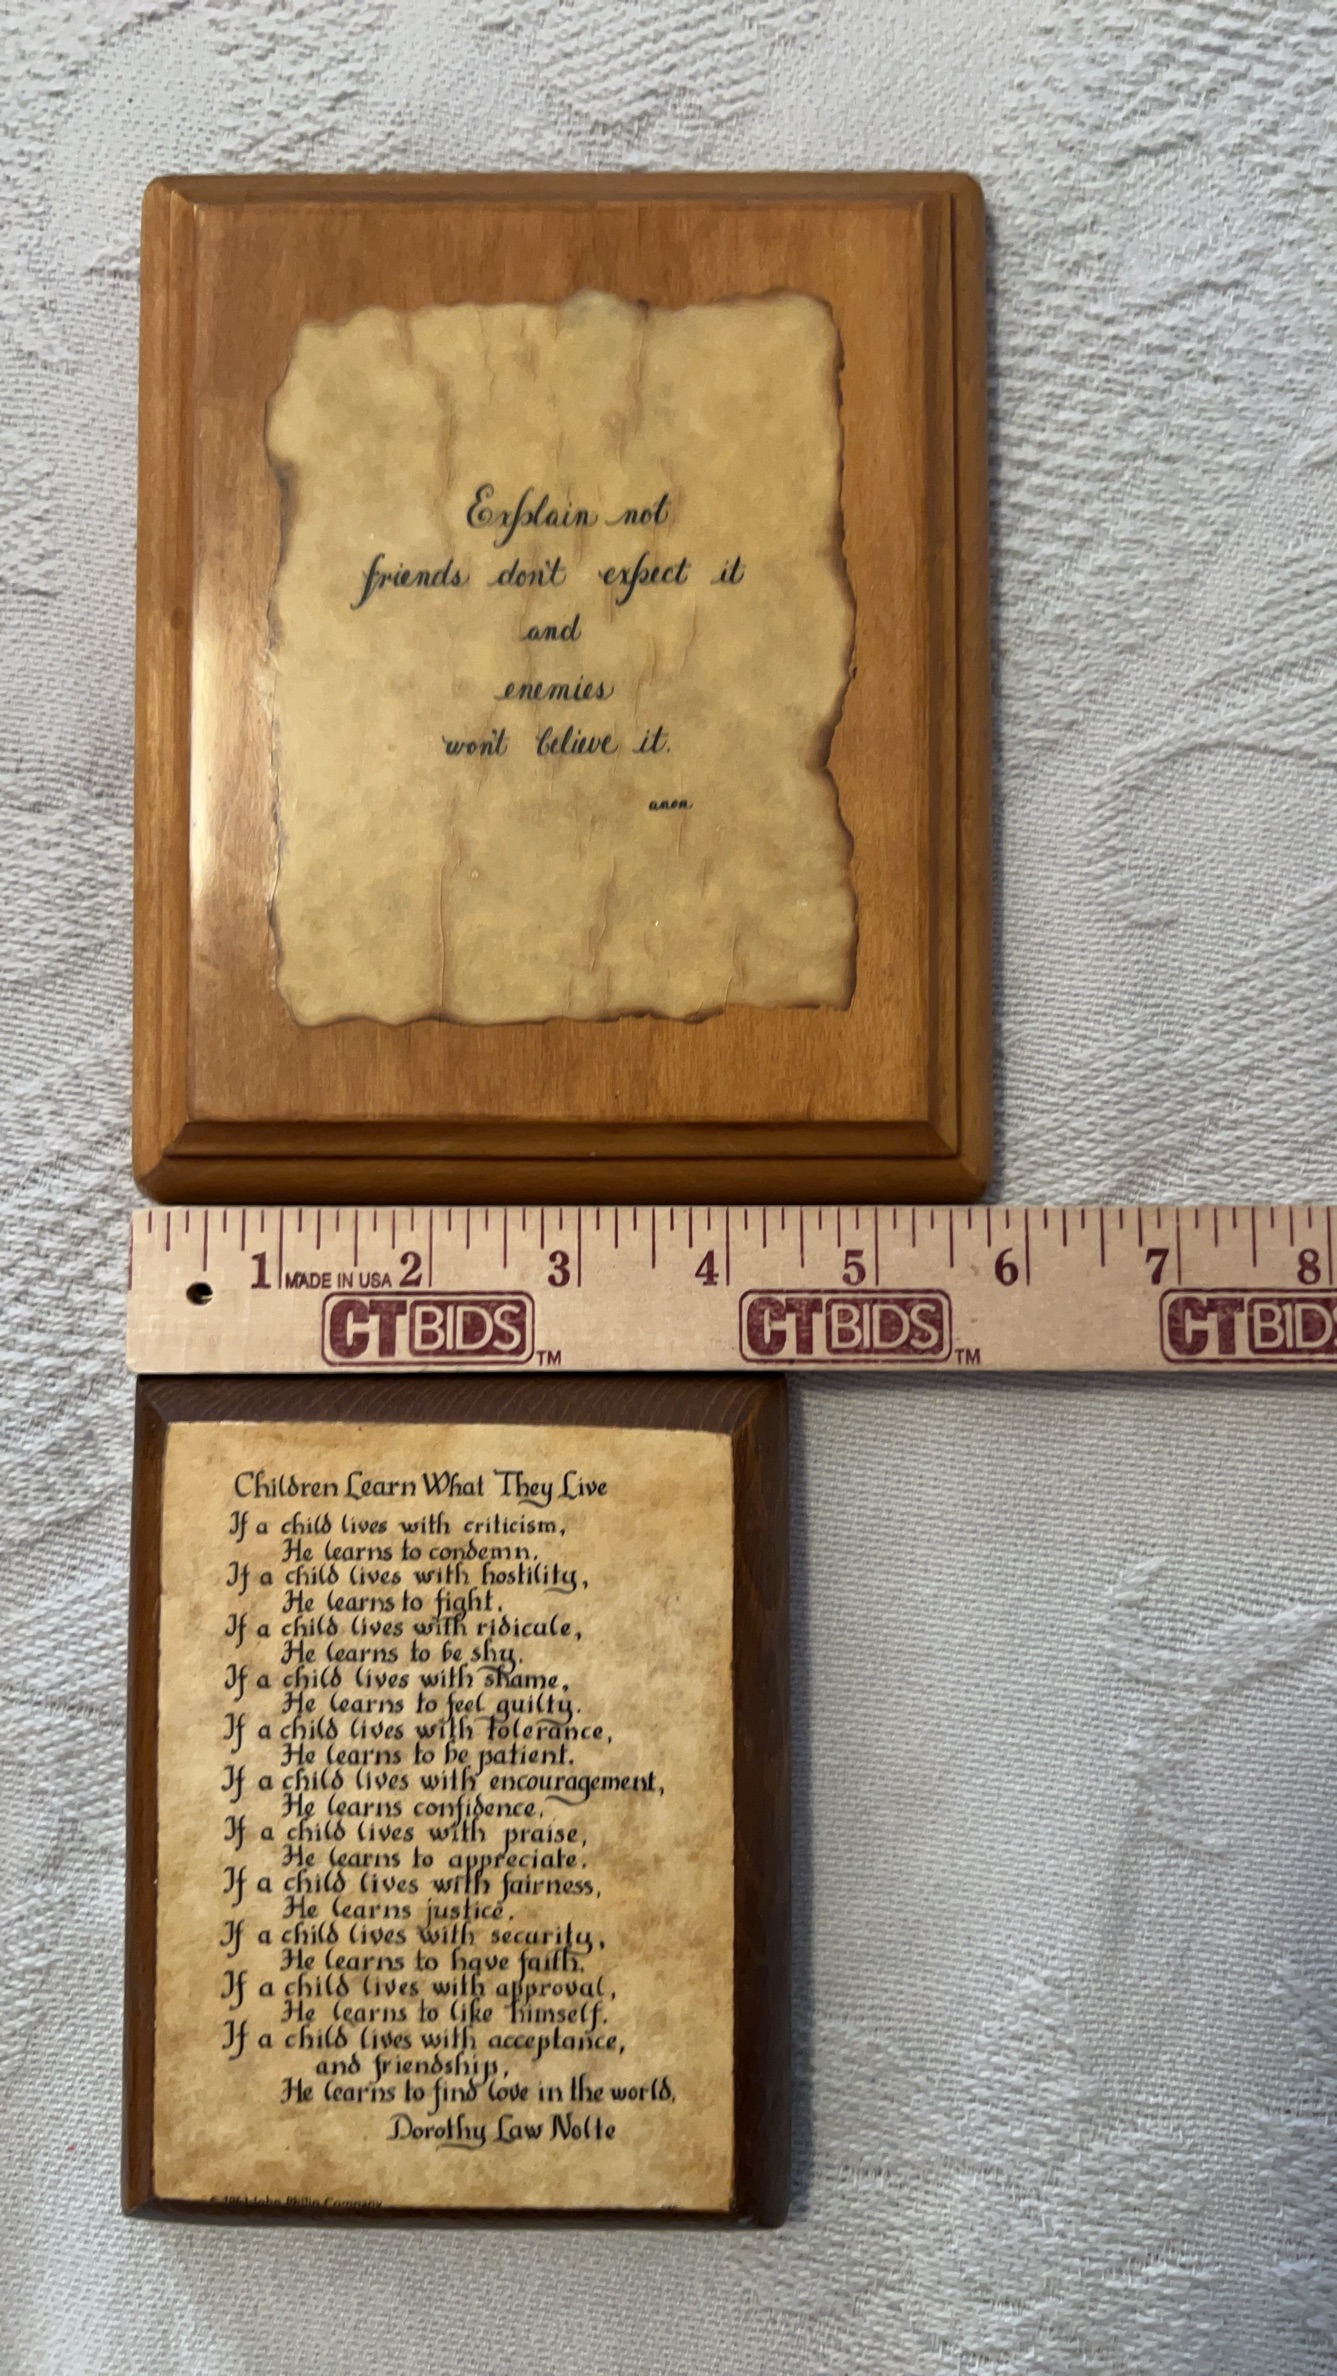 Explain not
friends don't expect it
and
enemies
won't believe it.
anon
1 MADE IN USA 2 3 4 5 6 7 8
CTBIDS TM CTBIDS TM CTBIDS
Children Learn What They Live
If a child lives with criticism,
He learns to condemn.
If a child lives with hostility,
He learns to fight.
If a child lives with ridicule,
He learns to be shy.
If a child lives with shame,
He learns to feel guilty.
If a child lives with tolerance,
He learns to be patient.
If a child lives with encouragement,
He learns confidence.
If a child lives with praise,
He learns to appreciate.
If a child lives with fairness,
He learns justice.
If a child lives with security,
He learns to have faith.
If a child lives with approval,
He learns to like himself.
If a child lives with acceptance,
and friendship,
He learns to find love in the world.
Dorothy Law Nolte
John Philip Company